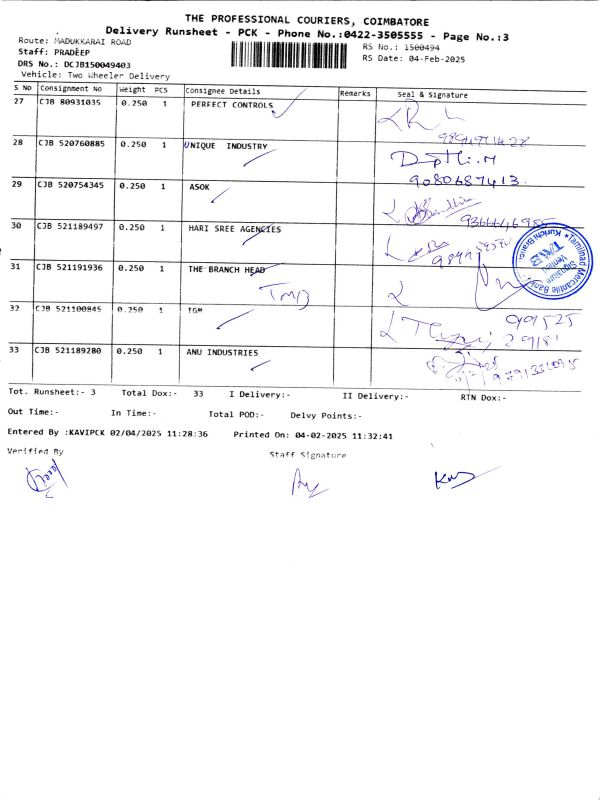 THE PROFESSIONAL COURIERS, COIMBATORE
Delivery Runsheet - PCK - Phone No.:0422-3505555 - Page No.:3
Route: MADUKKARAI ROAD
RS No.: 1500494
Staff: PRADEEP
RS Date: 04-Feb-2025
DRS No.: DCJB150049403
Vehicle: Two Wheeler Delivery
S No Consignment No Weight PCS Consignee Details Remarks Seal & Signature
27 CJB 80931035 0.250 1 PERFECT CONTROLS
28 CJB 520760885 0.250 1 UNIQUE INDUSTRY
9080687413
29 CJB 520754345 0.250 1 ASOK
30 CJB 521189497 0.250 1 HARI SREE AGENCIES
31 CJB 521191936 0.250 1 THE BRANCH HEAD
TMB
Tamilnad Mercantile Bank
Signature Verified
TMB
Kurichi Branch
32 CJB 521100845 0.250 1 TGM
99525
29181
33 CJB 521189280 0.250 1 ANU INDUSTRIES
Tot. Runsheet:- 3 Total Dox:- 33 I Delivery:- II Delivery:- RTN Dox:-
Out Time:- In Time:- Total POD:- Delvy Points:-
Entered By :KAVIPCK 02/04/2025 11:28:36 Printed On: 04-02-2025 11:32:41
Verified By Staff Signature